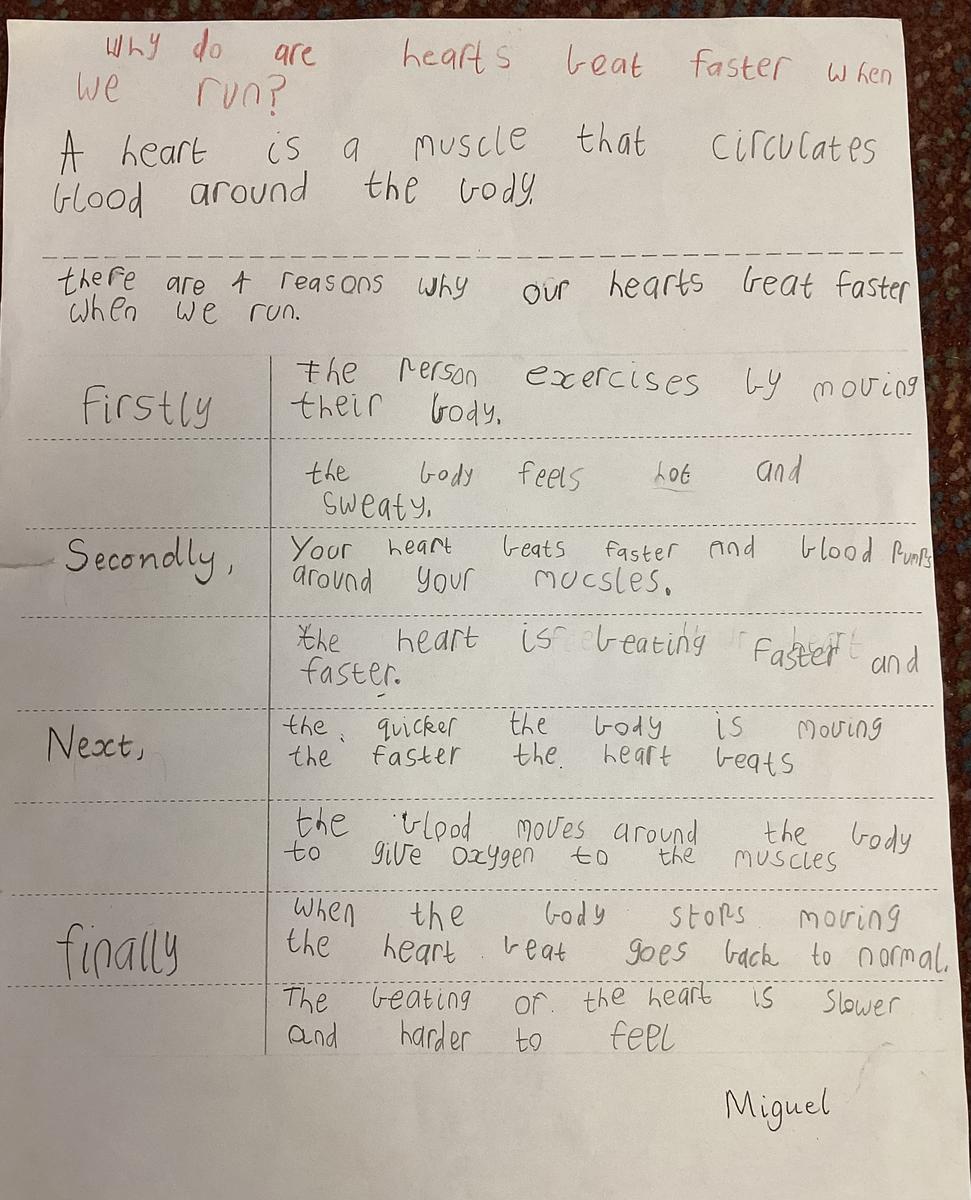 Why do are hearts beat faster when
we run?
A heart is a muscle that circulates
blood around the body.
there are 4 reasons why our hearts beat faster
when we run.
firstly
the person exercises by moving
their body.
the body feels hot and
sweaty.
Secondly,
Your heart beats faster and blood pumps
around your mucsles.
the heart is beating faster and
faster.
Next,
the quicker the body is moving
the faster the heart beats
the blood moves around the body
to give oxygen to the muscles
finally
When the body stops moving
the heart beat goes back to normal.
The beating of the heart is slower
and harder to feel
Miguel